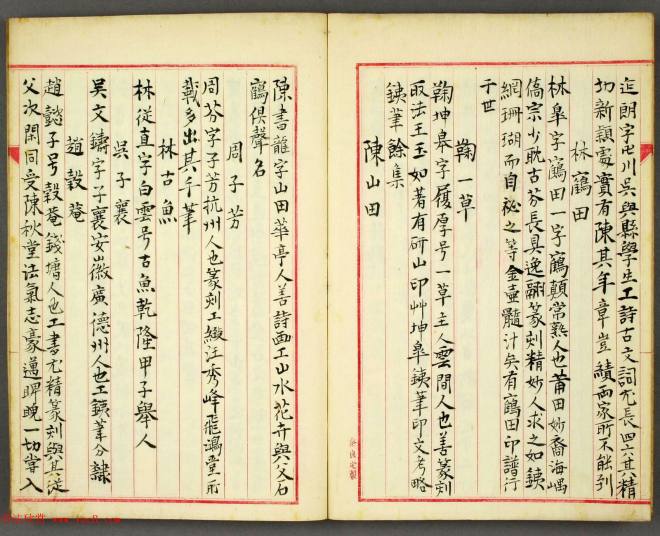 廷朗字屺川吳興縣學生工詩古文詞尤長四六其精
切新穎處實有陳其年章豈績兩家所不能到
林鶴田
林皋字鶴田一字鶴顛常熟人也莆田妙裔海嵎
僑宗少耽古芬長具逸翮篆刻精妙人求之如鉄
網珊瑚而自祕之等金壺髓汁矣有鶴田印譜行
于世
鞠一草
鞠坤皋字履厚号一草主人雲間人也善篆刻
取法王玉如著有研山印艸坤皋鉄筆印文考略
鉄筆餘集
陳山田
陳書龍字山田華亭人善詩画工山水花卉與父石
鶴俱聲名
周子芳
周芬字子芳杭州人也篆刻工緻汪秀峰飛鴻堂所
載多出其手筆
林古魚
林從直字白雲号古魚乾隆甲子舉人
吳子襄
吳文鑄字子襄安徽廣德州人也工鉄筆分隸
趙穀菴
趙懿子号穀菴錢塘人也工書尤精篆刻與其從
父次閑同受陳秋堂法氣志豪邁睥睨一切嘗入